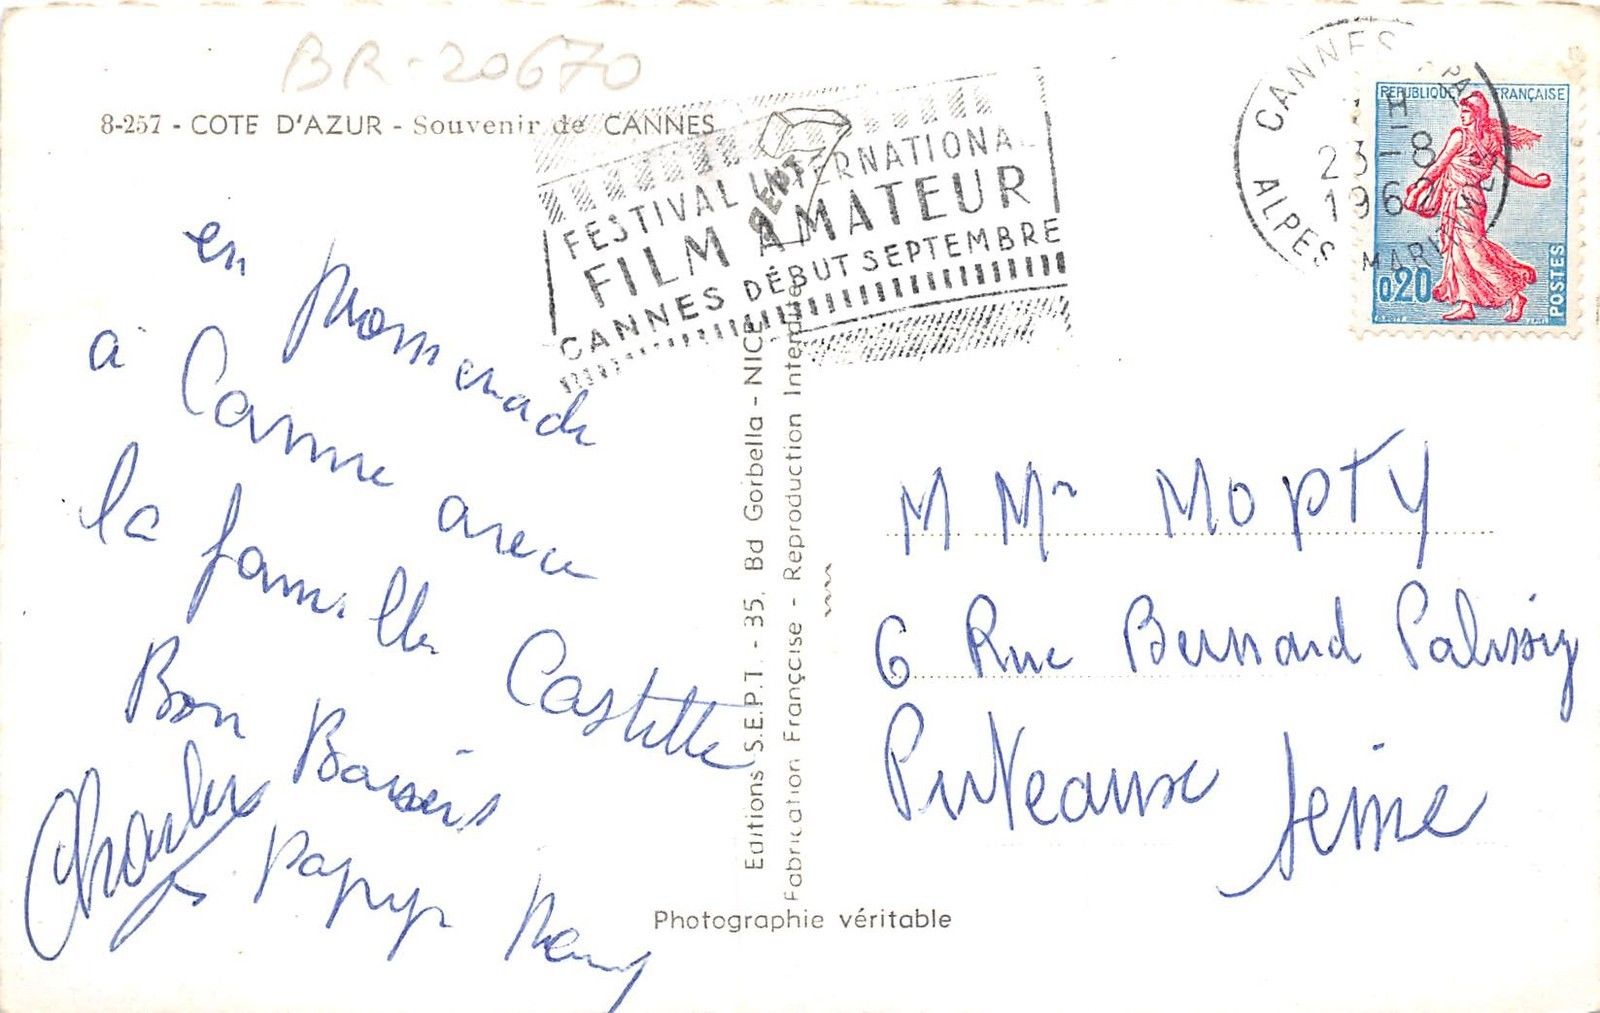 BR-20670
8-257 - COTE D'AZUR - Souvenir de CANNES
FESTIVAL INTERNATIONA
FILM AMATEUR
CANNES DÉBUT SEPTEMBRE
CANNES
23-8
1962
ALPES MARITIMES
REPUBLIQUE FRANÇAISE
0,20
POSTES
en promenade
à Canne avec
la famille Castille
Bon Baisers
Charles
Papy Mamy
Editions S.E.P.T. - 35, Bd Gorbella - NICE
Fabrication Française - Reproduction Interdite
Photographie véritable
M Mr MOPTY
6 Rue Bernard Palissy
Puteaux Seine